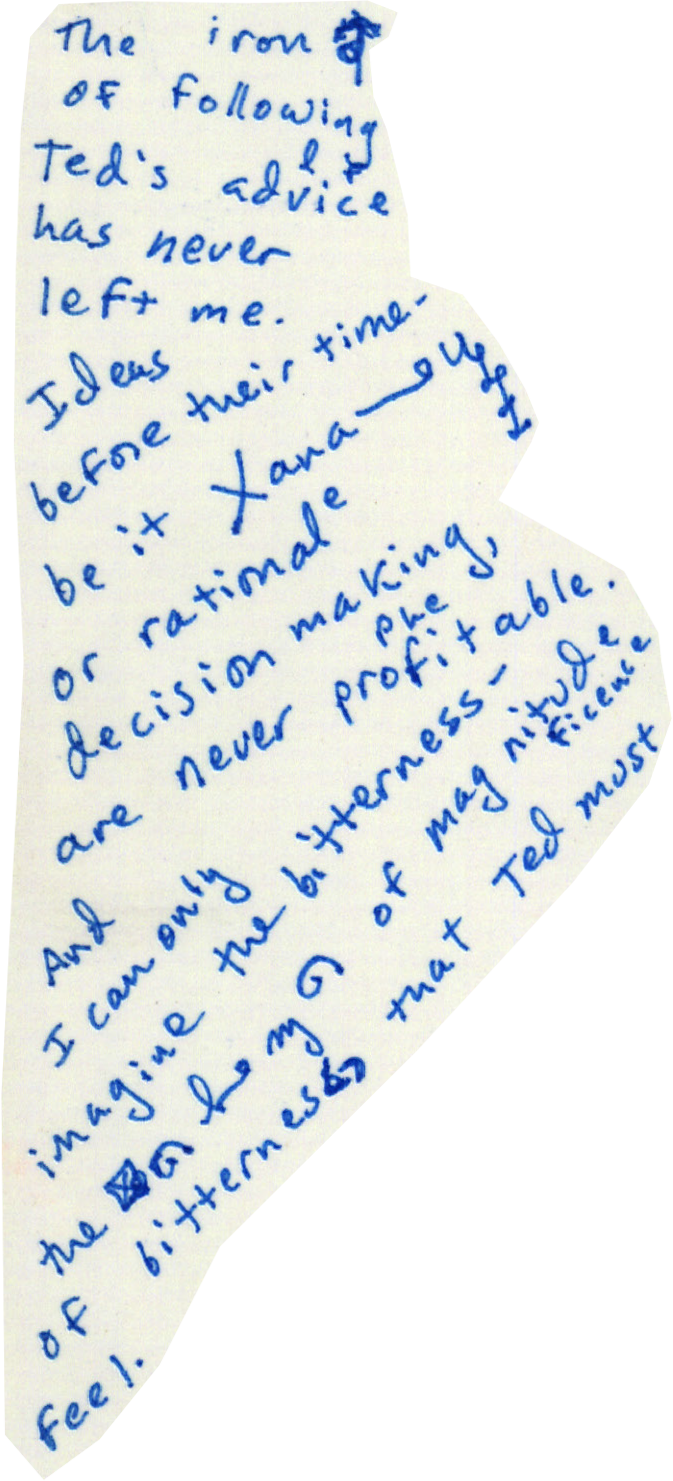 The iron
of following
Ted's advice
has never
left me.
Ideas
before their time-
be it Xana
or rational
decision making,
are never profitable.
And
I can only
imagine the bitterness-
the of magnitude
ficence
of bitterness that Ted must
feel.